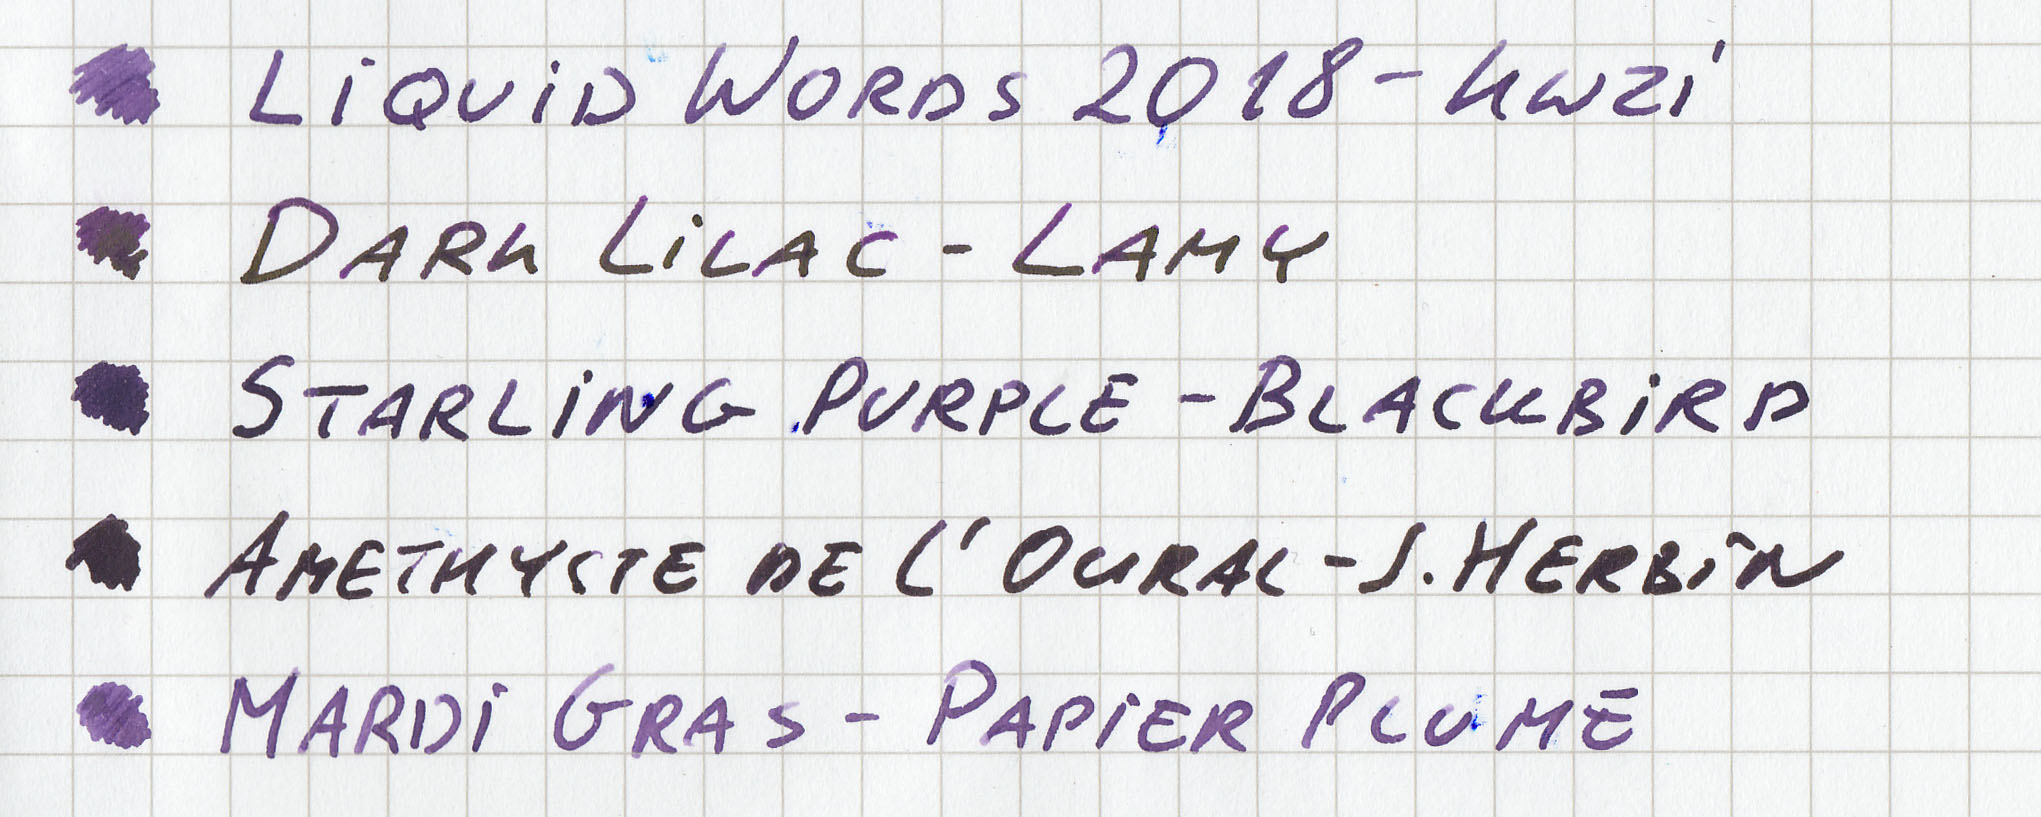 LiQUiD WORDS 2018 - KWZI
DARK LiLAC - LAMY
STARLiNG PURPLE - BLACKBiRD
AMETHYSTE DE L'OURAL - J. HERBiN
MARDi GRAS - PAPiER PLUME